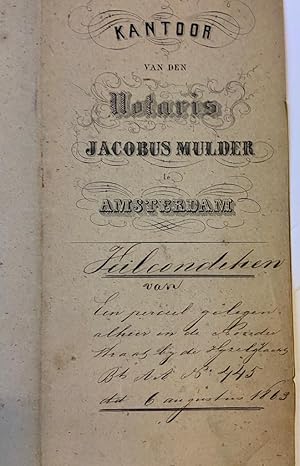 KANTOOR
VAN DEN
Notaris
JACOBUS MULDER
te
AMSTERDAM
Veilconditien
van
Een perceel gelegen
alhier in de
Straat bij de
N° 445
dd 6 augustus 1863